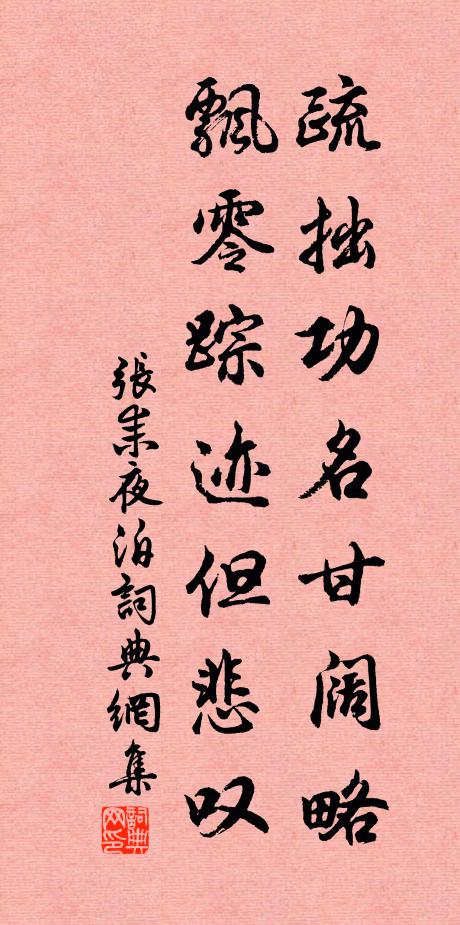 疏拙功名甘阔略
飘零踪迹但悲叹
張耒夜泊詞典網集
詞典网印